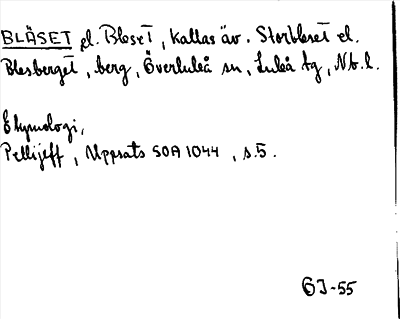 BLÄSET el. Bleset, kallas äv. Storbleset el.
Blesberget, berg, Överluleå sn, Luleå tg, Nb. l.
Etymologi,
Pellijeff, Uppsats SOA 1044, s. 5.
GJ-55